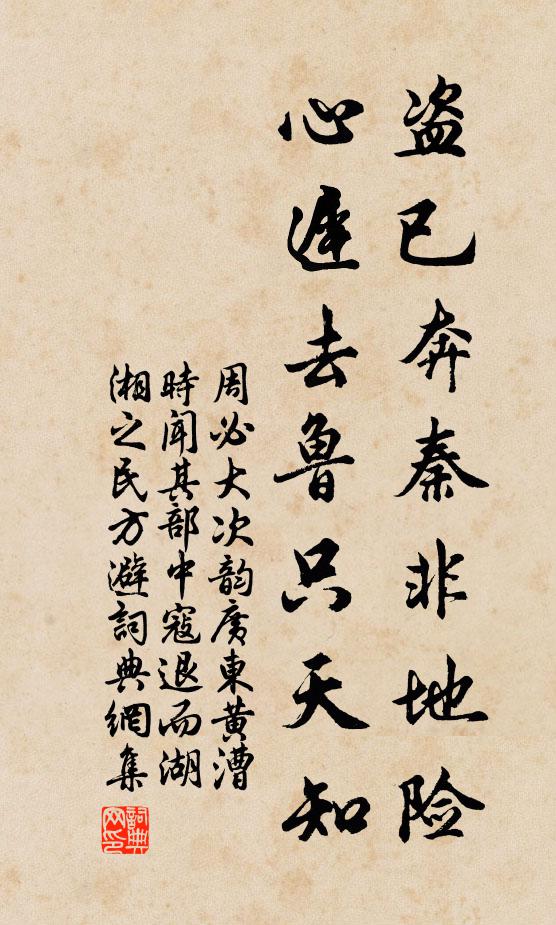 盗已奔秦非地险
心遅去魯只天知
周必大次韵廣東黄漕
時闻其部中寇退而湖
湘之民方避詞典網集
詞典
网印